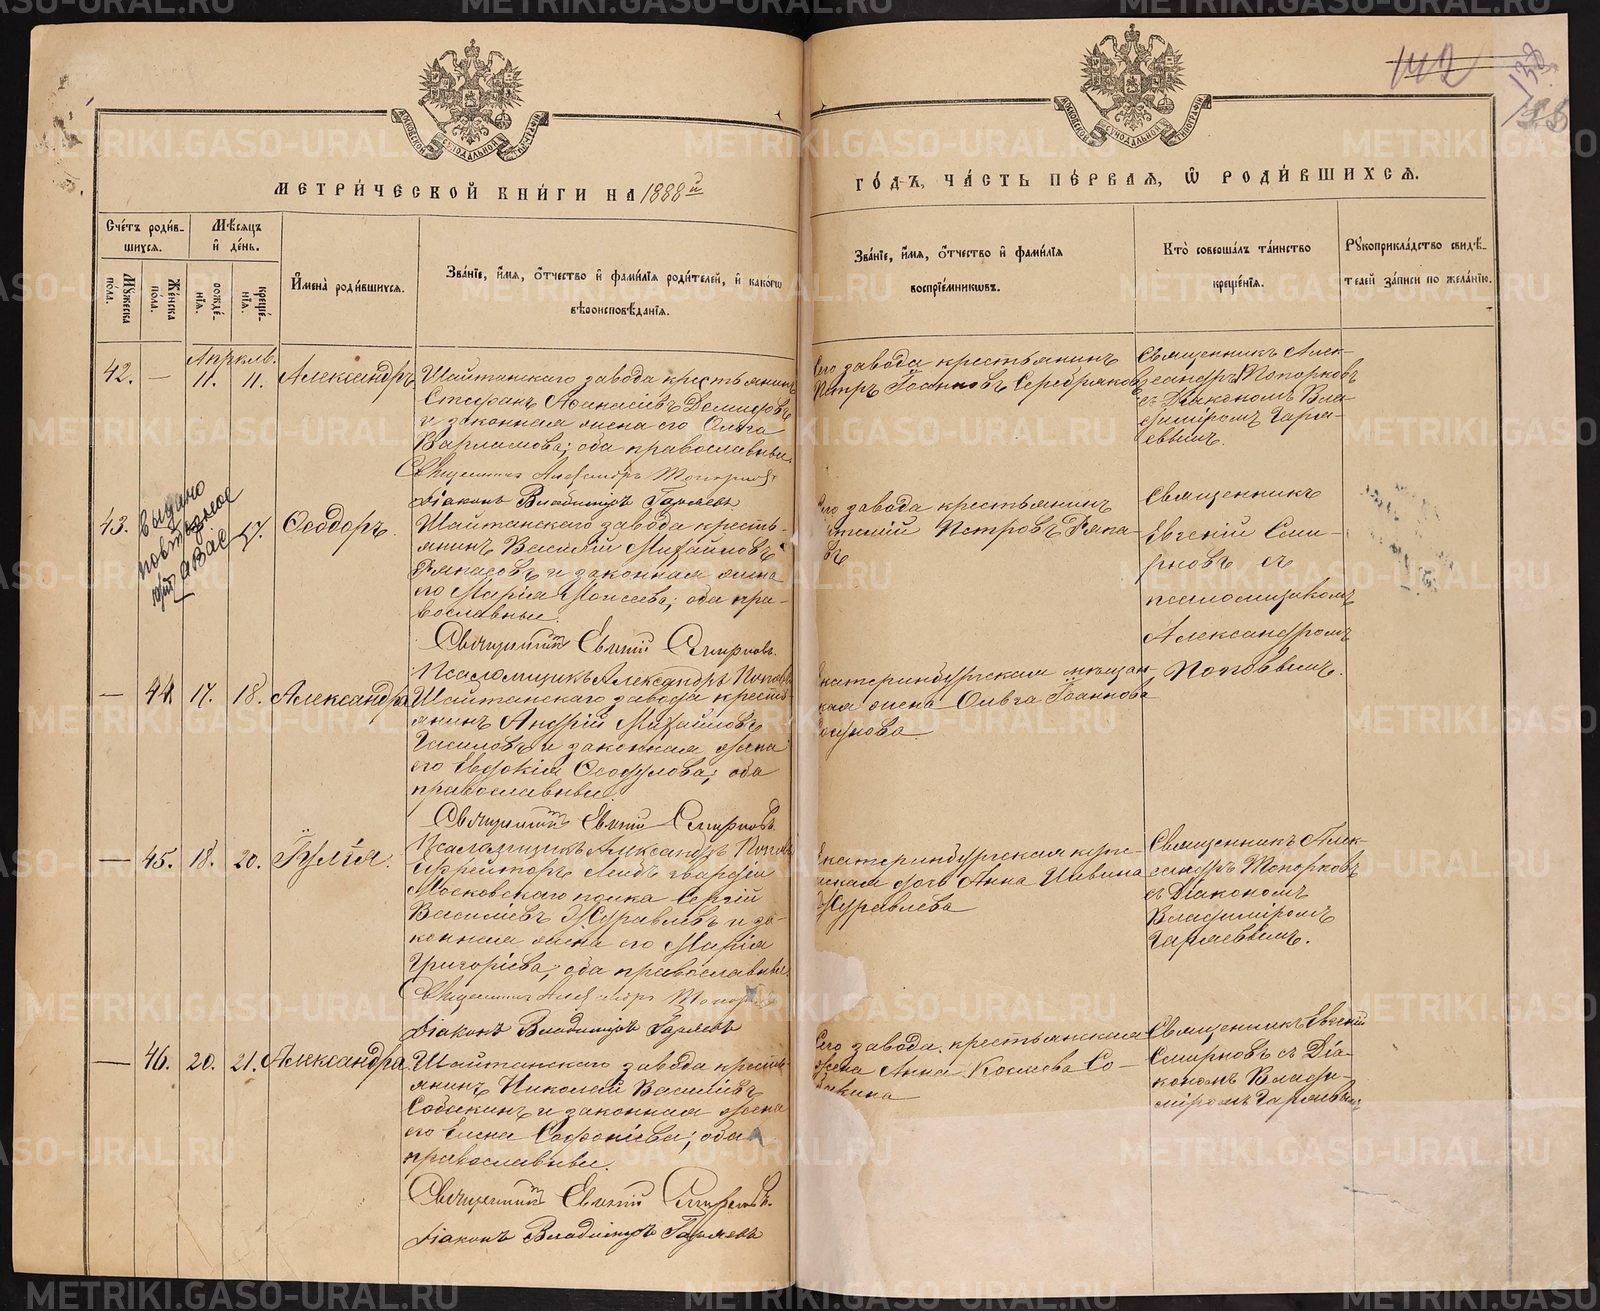 МЕТРИ́ЧЕСКОЙ КНИ́ГИ НА 1888 й
ГО́ДЪ, ЧА́СТЬ ПЕ́РВАЯ, Ѡ РОДИ́ВШИХСЯ.
142
Сче́тъ роди́в-
шихся.
Му́жеска по́ла.
Же́нска по́ла.
Мѣ́сяцъ
и҆ де́нь.
рожде́-
нїя.
креще́-
нїя.
И҆мена̀ роди́вшихся.
Зва́нїе, и҆́мя, ѻ҆́тчество и҆ фами́лїя роди́телей, и҆ како́гѡ
вѣроисповѣ́данїя.
Зва́нїе, и҆́мя, ѻ҆́тчество и҆ фами́лїя
воспрїе́мниковъ.
Кто̀ соверша́лъ та́инство
креще́нїя.
Рꙋкоприкла́дство свидѣ́-
телей за́писи по жела́нїю.
Апрѣль.
42. — 11. 11. Александръ
Шайтанскаго завода крестьянинъ
Стефанъ Аѳанасіевъ Демидовъ
и законная жена его Ольга
Варламова; оба православные.
Священникъ Александръ Топорковъ
Діаконъ Владиміръ Гаряевъ
Сего завода крестьянинъ
Петръ Іоанновъ Серебряковъ
Священникъ Алек-
сандръ Топорковъ
съ Діакономъ Вла-
диміромъ Гаря-
евымъ.
43. 17. Ѳеодоръ.
выдано
Шайтанскаго завода кресть-
янинъ Василій Михайловъ
и законная жена
его Марія Моисеева; оба пра-
вославные.
Священникъ Евгеній Смирновъ.
Псаломщикъ Александръ Поповъ
Сего завода крестьянинъ
Петровъ
Священникъ
Евгеній Сми-
рновъ съ
псаломщикомъ
Александромъ
Поповымъ.
— 44. 17. 18. Александра
Шайтанскаго завода кресть-
янинъ Андрей Михайловъ
и законная жена
его Евдокія Ѳеодулова; оба
православные.
Священникъ Евгеній Смирновъ.
Псаломщикъ Александръ Поповъ
Екатеринбургская мѣщан-
ская жена Ольга Іоаннова
— 45. 18. 20. Іулія.
Ефрейторъ Лейбъ гвардіи
Московскаго полка Сергій
Василіевъ Журавлевъ и за-
конная жена его Марія
Григоріева; оба православные.
Священникъ Александръ Топорковъ
Діаконъ Владиміръ Гаряевъ
Екатеринбургская купе-
ческая дочь Анна
Журавлева
Священникъ Алек-
сандръ Топорковъ
съ Діакономъ
Владиміромъ
Гаряевымъ.
— 46. 20. 21. Александра
Шайтанскаго завода кресть-
янинъ Николай Василіевъ
Собакинъ и законная жена
его Елена Софоніева; оба
православные.
Священникъ Евгеній Смирновъ.
Діаконъ Владиміръ Гаряевъ
Сего завода крестьянская
жена Анна Космова Со-
бакина
Священникъ Евгеній
Смирновъ съ Діа-
кономъ Влади-
міромъ Гаряевымъ
METRIKI.GASO-URAL.RU